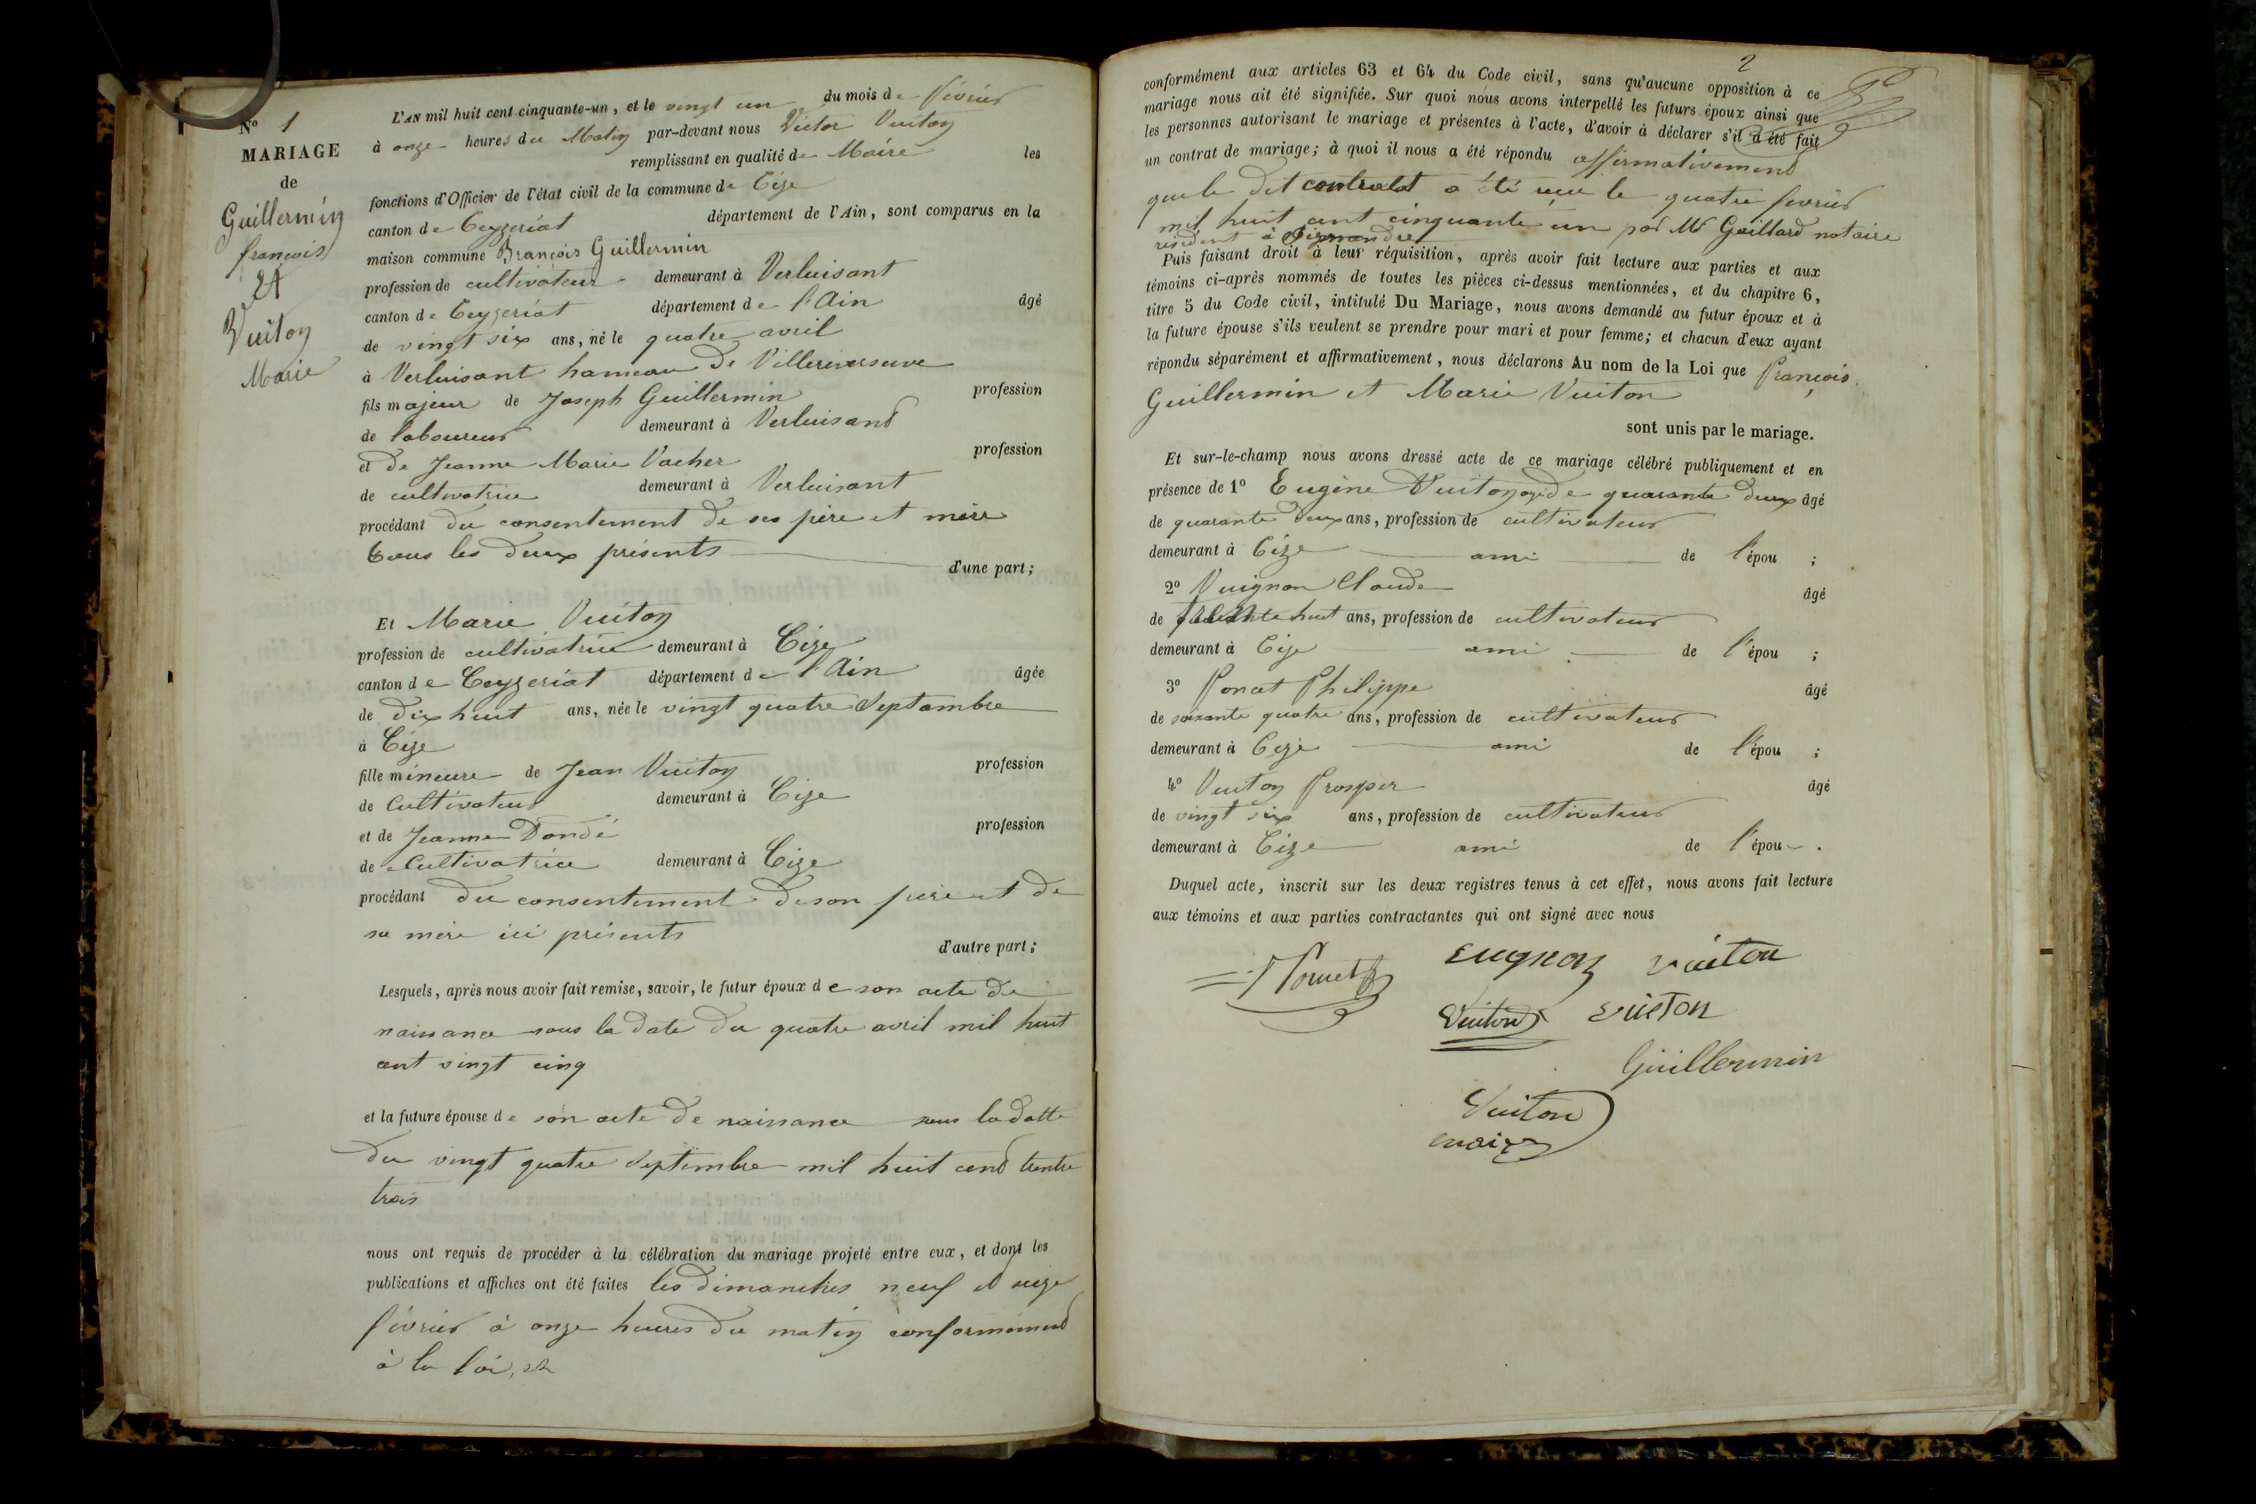 Nº 1
MARIAGE
de
Guillermin
françois
Et
Vuiton
Marie
L'AN mil huit cent cinquante-un, et le vingt un du mois de février
à onze heures du Matin par-devant nous Victor Vuiton
remplissant en qualité de Maire les
fonctions d'Officier de l'état civil de la commune de Cize
canton de Ceyzeriat département de l'Ain, sont comparus en la
maison commune François Guillermin
profession de cultivateur demeurant à Verluisant
canton de Ceyzeriat département de l'Ain âgé
de vingt six ans, né le quatre avril
à Verluisant hameau de Villereversure
fils majeur de Joseph Guillermin profession
de laboureur demeurant à Verluisant
et de Jeanne Marie Vacher profession
de cultivatrice demeurant à Verluisant
procédant du consentement de ses père et mère
tous les deux présents d'une part;
Et Marie Vuiton
profession de cultivatrice demeurant à Cize
canton de Ceyzeriat département de l'Ain âgée
de dix huit ans, née le vingt quatre Septambre
à Cize
fille mineure de Jean Vuiton profession
de Cultivateur demeurant à Cize
et de Jeanne Dondé profession
de Cultivatrice demeurant à Cize
procédant du consentement de son père et de
sa mère ici présents
d'autre part;
Lesquels, après nous avoir fait remise, savoir, le futur époux de son acte de
naissance sous la date du quatre avril mil huit
cent vingt cinq
et la future épouse de son acte de naissance sous la datte
du vingt quatre Septembre mil huit cent trente
trois
nous ont requis de procéder à la célébration du mariage projeté entre eux, et dont les
publications et affiches ont été faites les dimanches neuf et seize
février à onze heures du matin conformément
à la loi,
2
conformément aux articles 63 et 64 du Code civil, sans qu'aucune opposition à ce
mariage nous ait été signifiée. Sur quoi nous avons interpellé les futurs époux ainsi que
les personnes autorisant le mariage et présentes à l'acte, d'avoir à déclarer s'il a été fait
un contrat de mariage; à quoi il nous a été répondu affirmativement
que le dit contrat a été reçu le quatre février
mil huit cent cinquante un par Mr Gaillard notaire
résident à
Puis faisant droit à leur réquisition, après avoir fait lecture aux parties et aux
témoins ci-après nommés de toutes les pièces ci-dessus mentionnées, et du chapitre 6,
titre 5 du Code civil, intitulé Du Mariage, nous avons demandé au futur époux et à
la future épouse s'ils veulent se prendre pour mari et pour femme; et chacun d'eux ayant
répondu séparément et affirmativement, nous déclarons Au nom de la Loi que François
Guillermin et Marie Vuiton
sont unis par le mariage.
Et sur-le-champ nous avons dressé acte de ce mariage célébré publiquement et en
présence de 1º Eugène Vuiton agé de quarante deux âgé
de quarante deux ans, profession de cultivateur
demeurant à Cize ami de l'épou ;
2º Vuignon Claude âgé
de trente huit ans, profession de cultivateur
demeurant à Cize ami de l'épou ;
3º Poncet Philippe âgé
de soixante quatre ans, profession de cultivateur
demeurant à Cize ami de l'épou ;
4º Vuiton Prosper âgé
de vingt six ans, profession de cultivateur
demeurant à Cize ami de l'épou .
Duquel acte, inscrit sur les deux registres tenus à cet effet, nous avons fait lecture
aux témoins et aux parties contractantes qui ont signé avec nous
Poncet vuiton
Vuiton vuiton
Guillermin
Vuiton
maire